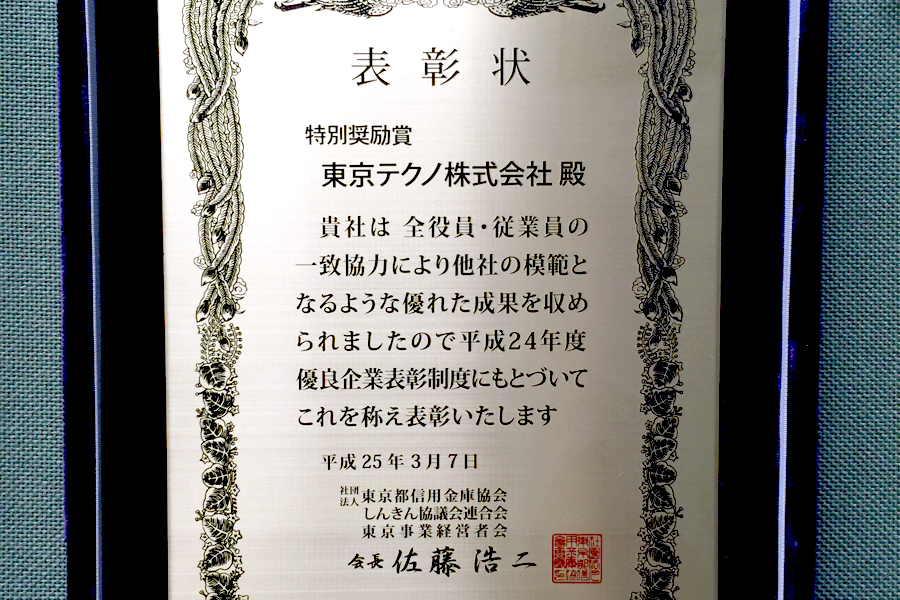 表彰状
特別奨励賞
東京テクノ株式会社 殿
貴社は 全役員・従業員の
一致協力により他社の模範と
なるような優れた成果を収め
られましたので平成24年度
優良企業表彰制度にもとづいて
これを称え表彰いたします
平成25年3月7日
社団法人 東京都信用金庫協会
しんきん協議会連合会
東京事業経営者会
会長 佐藤浩二